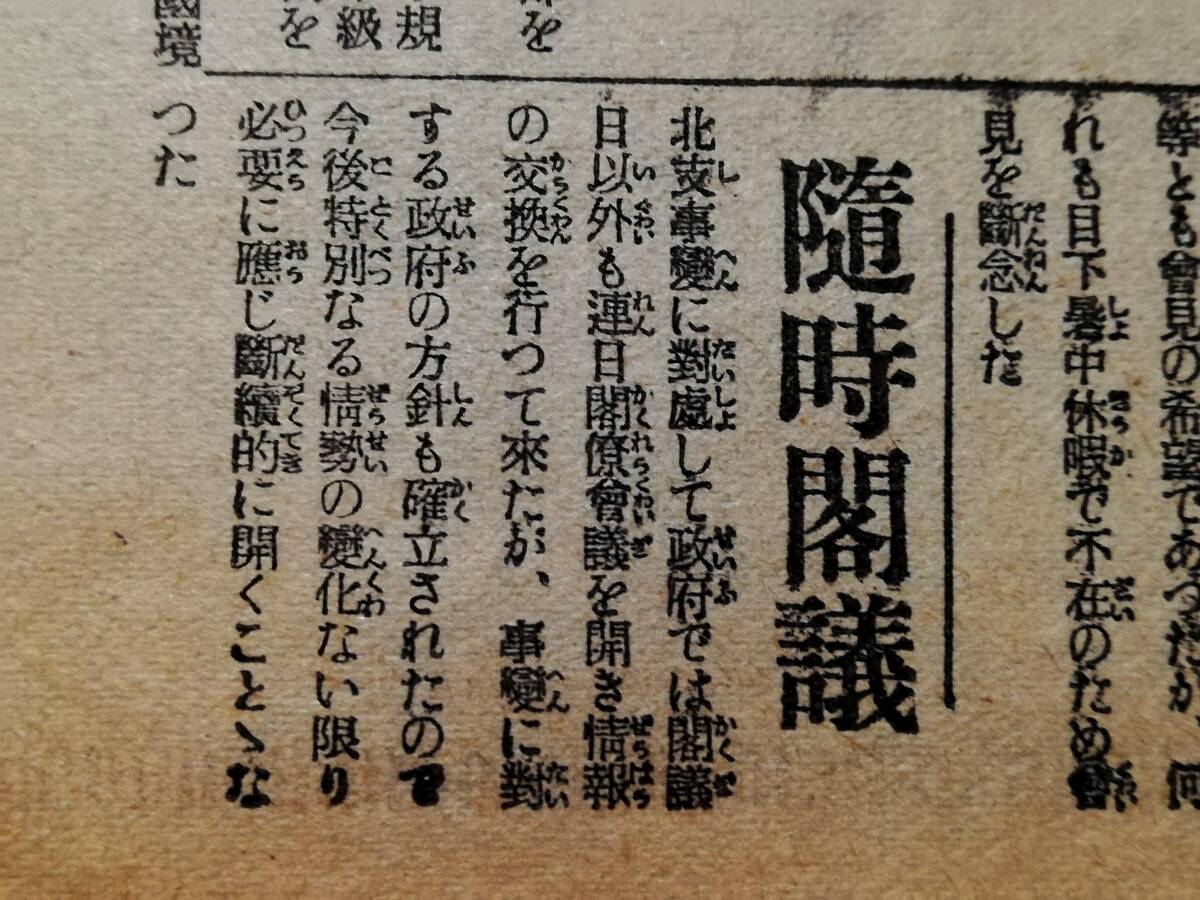 部を
規
級
を
國境
等とも會見の希望であつたが、何
れも目下暑中休暇で不在のため會
見を斷念した
隨時閣議
北支事變に對處して政府では閣議
日以外も連日閣僚會議を開き情報
の交換を行つて來たが、事變に對
する政府の方針も確立されたので
今後特別なる情勢の變化ない限り
必要に應じ斷續的に開くことゝな
つた